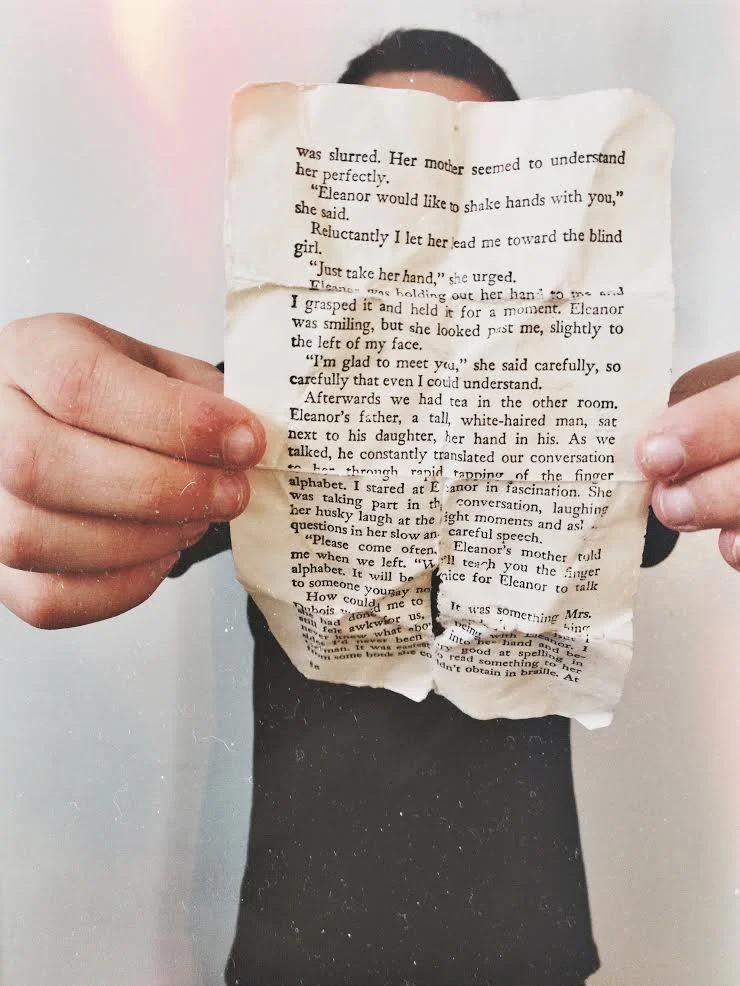 was slurred. Her mother seemed to understand
her perfectly.
“Eleanor would like to shake hands with you,”
she said.
Reluctantly I let her lead me toward the blind
girl.
“Just take her hand,” she urged.
Eleanor was holding out her hand to me and
I grasped it and held it for a moment. Eleanor
was smiling, but she looked past me, slightly to
the left of my face.
“I’m glad to meet you,” she said carefully, so
carefully that even I could understand.
Afterwards we had tea in the other room.
Eleanor’s father, a tall, white-haired man, sat
next to his daughter, her hand in his. As we
talked, he constantly translated our conversation
to her through rapid tapping of the finger
alphabet. I stared at Eleanor in fascination. She
was taking part in the conversation, laughing
her husky laugh at the right moments and
questions in her slow and careful speech.
“Please come often,” Eleanor’s mother told
me when we left. “We’ll teach you the finger
alphabet. It will be nice for Eleanor to talk
to someone
How could It was something Mrs.
Dubois me to
had done us,
still felt awkward being with Eleanor. I
never knew what into her hand and be-
sides I’d never been very good at spelling in
German. It was easiest to read something to her
from some book she couldn’t obtain in braille. At